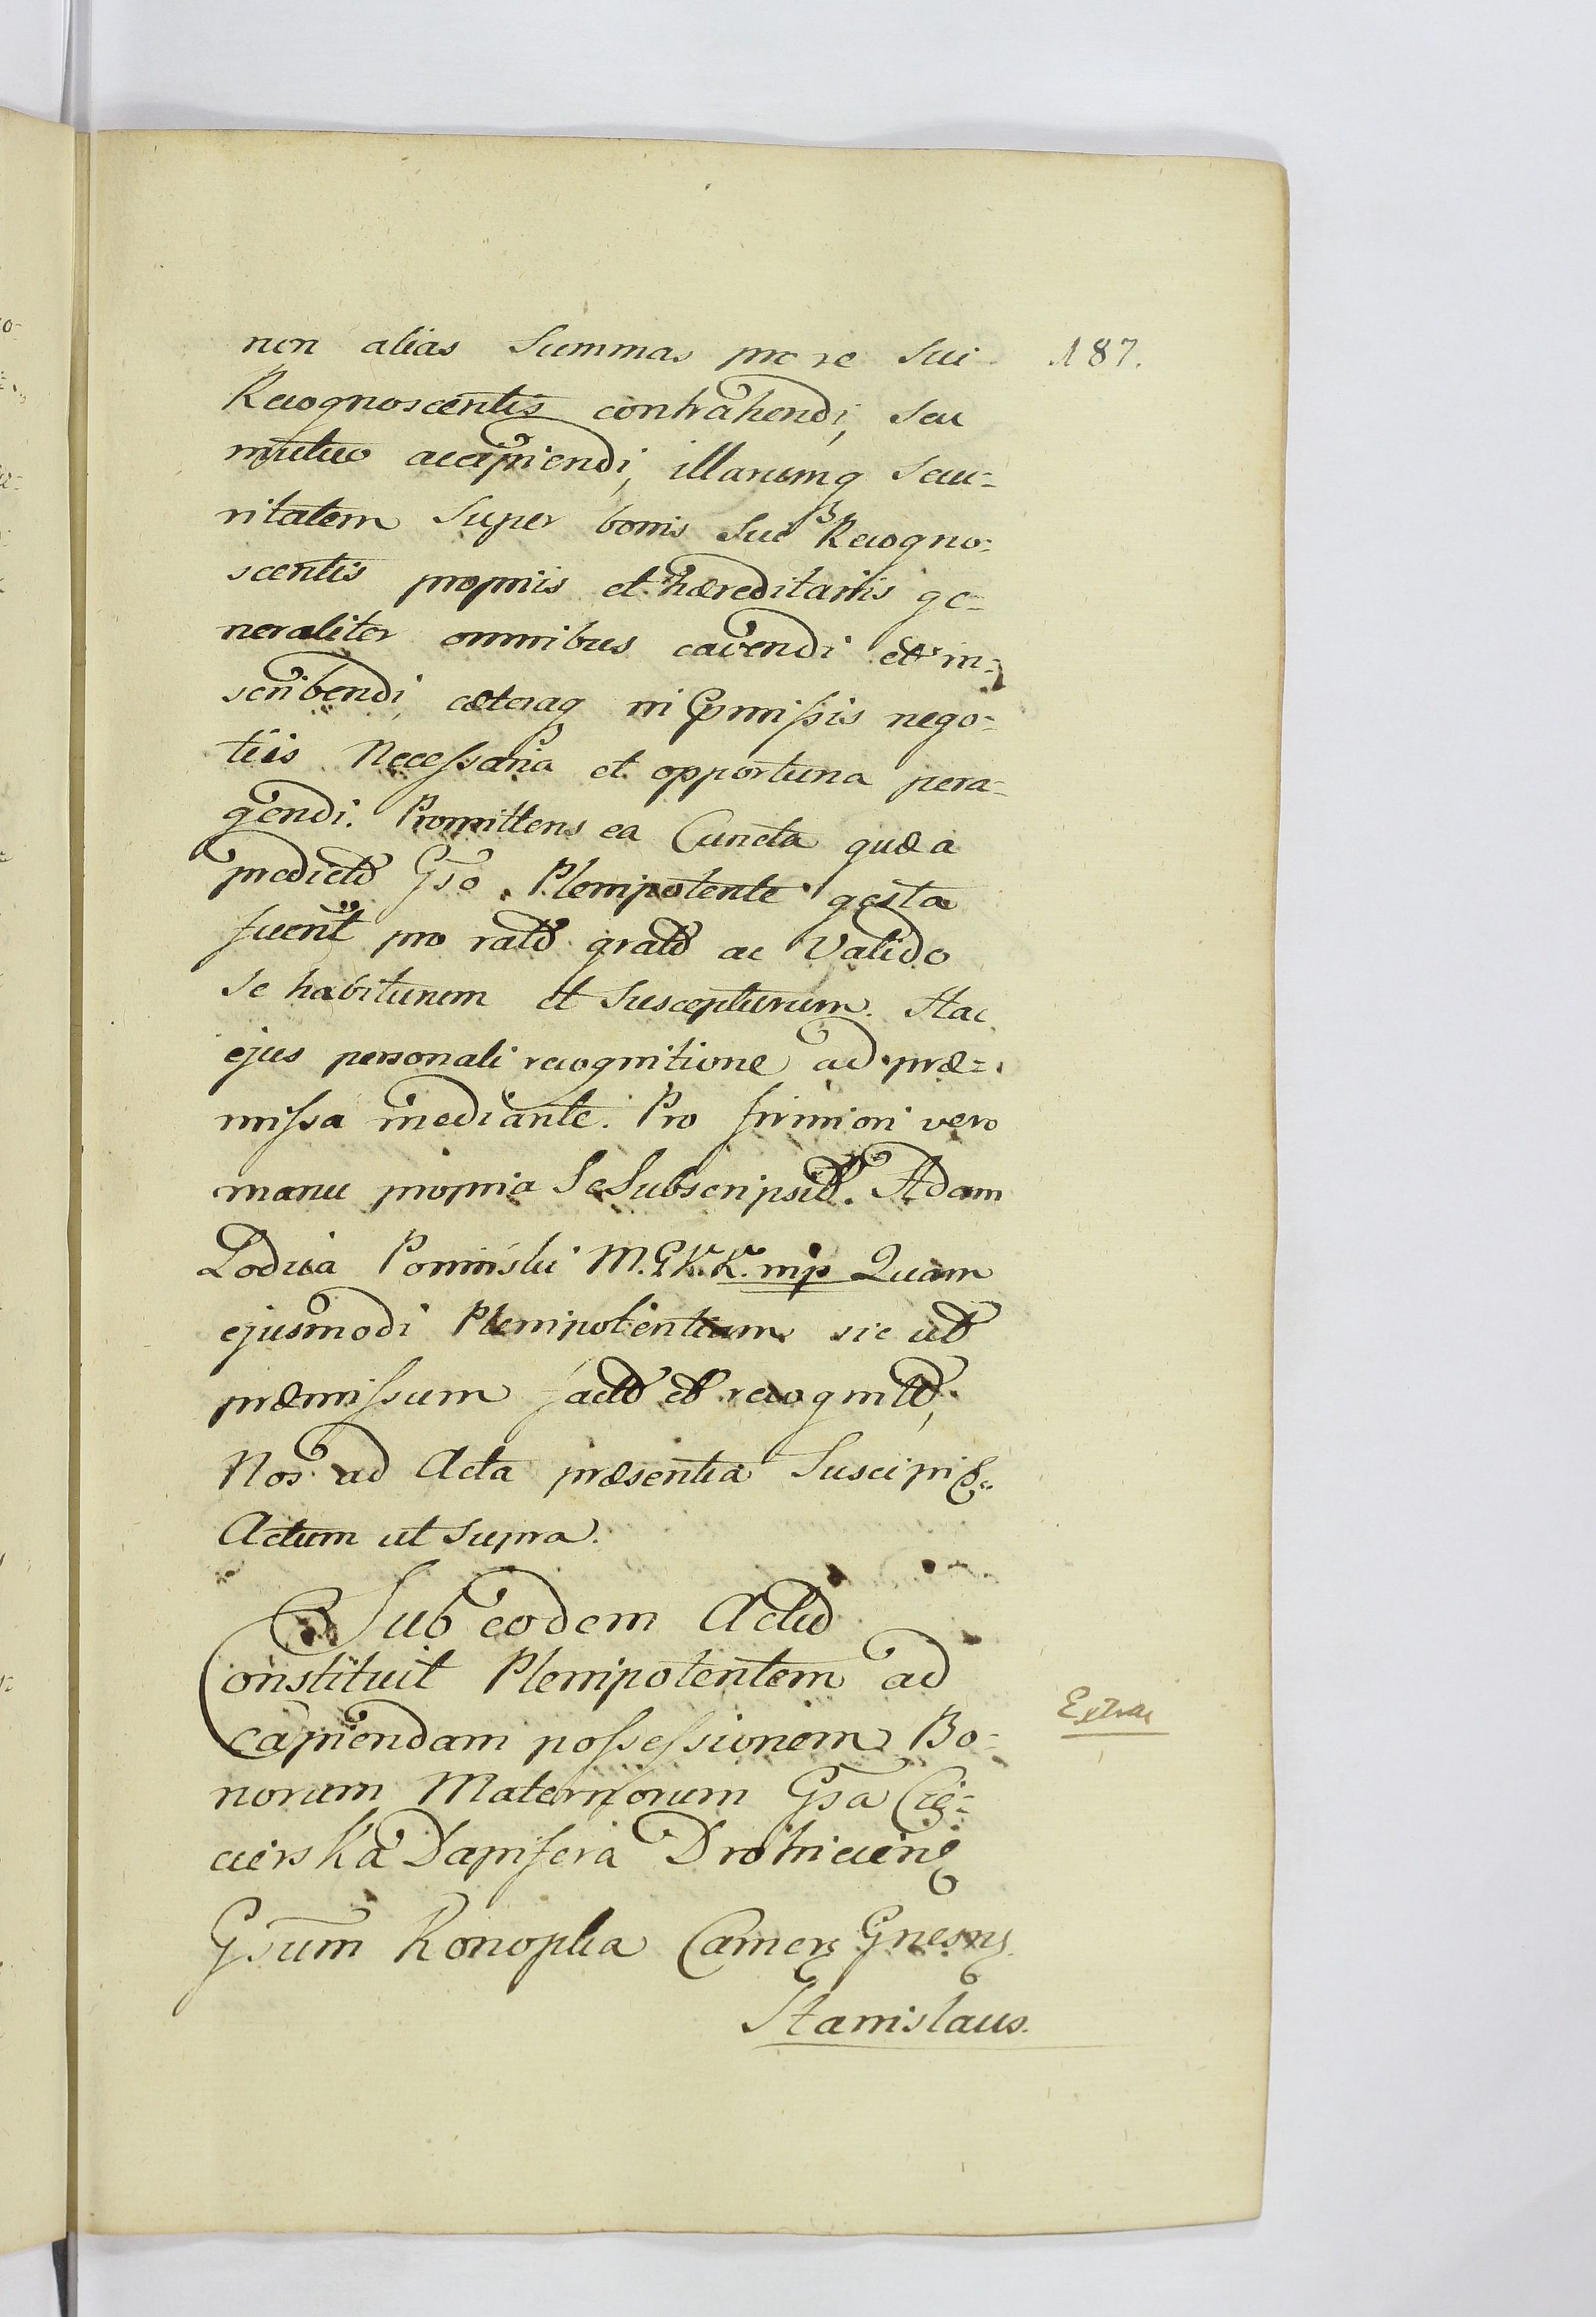 non alias Summas pro re Sui
187.
Recognoscentis contrahendi, seu
mutuo accipiendi, illarumq secu=
ritatem Super bonis Sui Recogno=
scentis propriis et hæreditariis ge=
neraliter omnibus cavendi et in=
scribendi, cæteraq in pmissis nego=
tiis Necessaria et opportuna pera=
gendi. Promittens ea Cuncta quæ a
prædicto Gso Plenipotente gesta
fuerint pro rato grato ac Valido
se habiturum et Suscepturum. Hac
ejus personali recognitione ad præ=
missa mediante. Pro firmiori vero
manu propria Se Subscripsit. Adam
Lodzia Poninski M. G. K. K. mp Quam
ejusmodi Plenipotentiam sic ut
præmissum facto et recognito,
Nos ad Acta præsentia Suscipi
Actum ut supra.
Sub eodem Actu
Constituit Plenipotentem ad
capiendam possessionem Bo=
norum Maternorum Gsa Cie=
cierska Dapifera Drohicien
Extrac
Gsum Konoplia Camer Gnesn
Stanislaus.